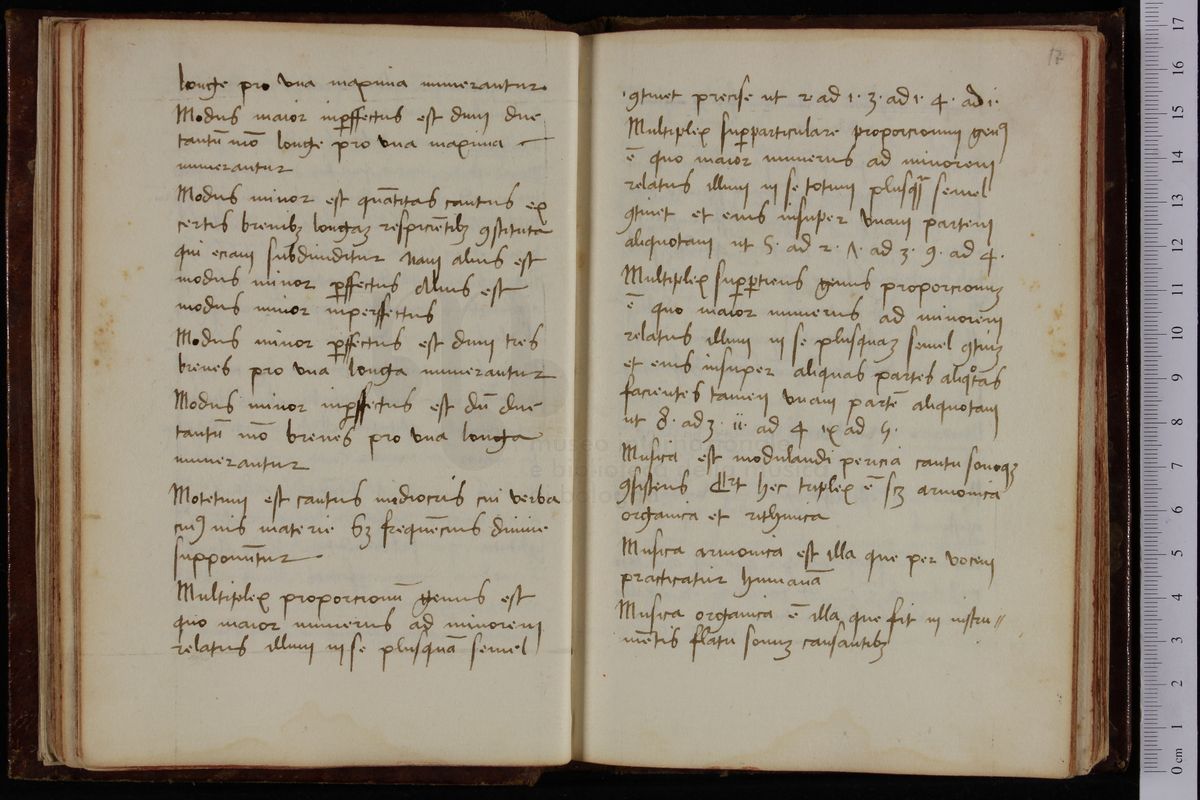 longe pro vna maxima numerantur.
Modus maior inperffectus est dum due
tantũ mõ longe pro vna maxima
numerantur
Modus minor est quãtitas cantus ex
certis breuibꝫ longaꝫ respiciẽtibꝫ ꝯstituta
qui eciam subdiuiditur nam alius est
modus minor perffectus Alius est
modus minor inperffectus
Modus minor perffectus est dum tres
breues pro vna longa numerantur
Modus minor inperffectus est dũ due
tantũ mõ breues pro vna longa
numerantur
Motetum est cantus mediocris cui verba
cuiꝰ uis materie sꝫ frequẽcius diuine
supponũtur
Multiplex proporcionũ genus est
quo maior numerus ad minorem
relatus illum in se plusquã semel
ꝯtinet precise ut 2 ad 1. 3. ad 1. 4. ad 1.
Multiplex supperparticulare proporcionum genꝰ
ẽ quo maior numerus ad minorem
relatus illum in se totum plusqã semel
ꝯtinet et eius insuper vnam partem
aliquotam ut 5. ad 2. 7. ad 3. 9. ad 4.
Multiplex supperperciens genus proporcionuꝫ
ẽ quo maior numerus ad minorem
relatus illum in se plusquaꝫ semel ꝯtinꝫ
et eius insuper aliquas partes aliqotas
facientes tamen vnam partẽ aliquotam
ut 8. ad 3. ii. ad 4 ix ad 5.
Musica est modulandi pericia cantu sonoqꝫ
ꝯsistens Et hec triplex ẽ scꝫ armonica
organica et rithmica
Musica armonica est illa que per vocem
practicatur humanã
Musica organica ẽ illa que fit in instru//
mẽtis flatu sonuꝫ causantibꝫ
17
museo internazionale
e biblioteca della musica
di bologna
0 cm 1 2 3 4 5 6 7 8 9 10 11 12 13 14 15 16 17